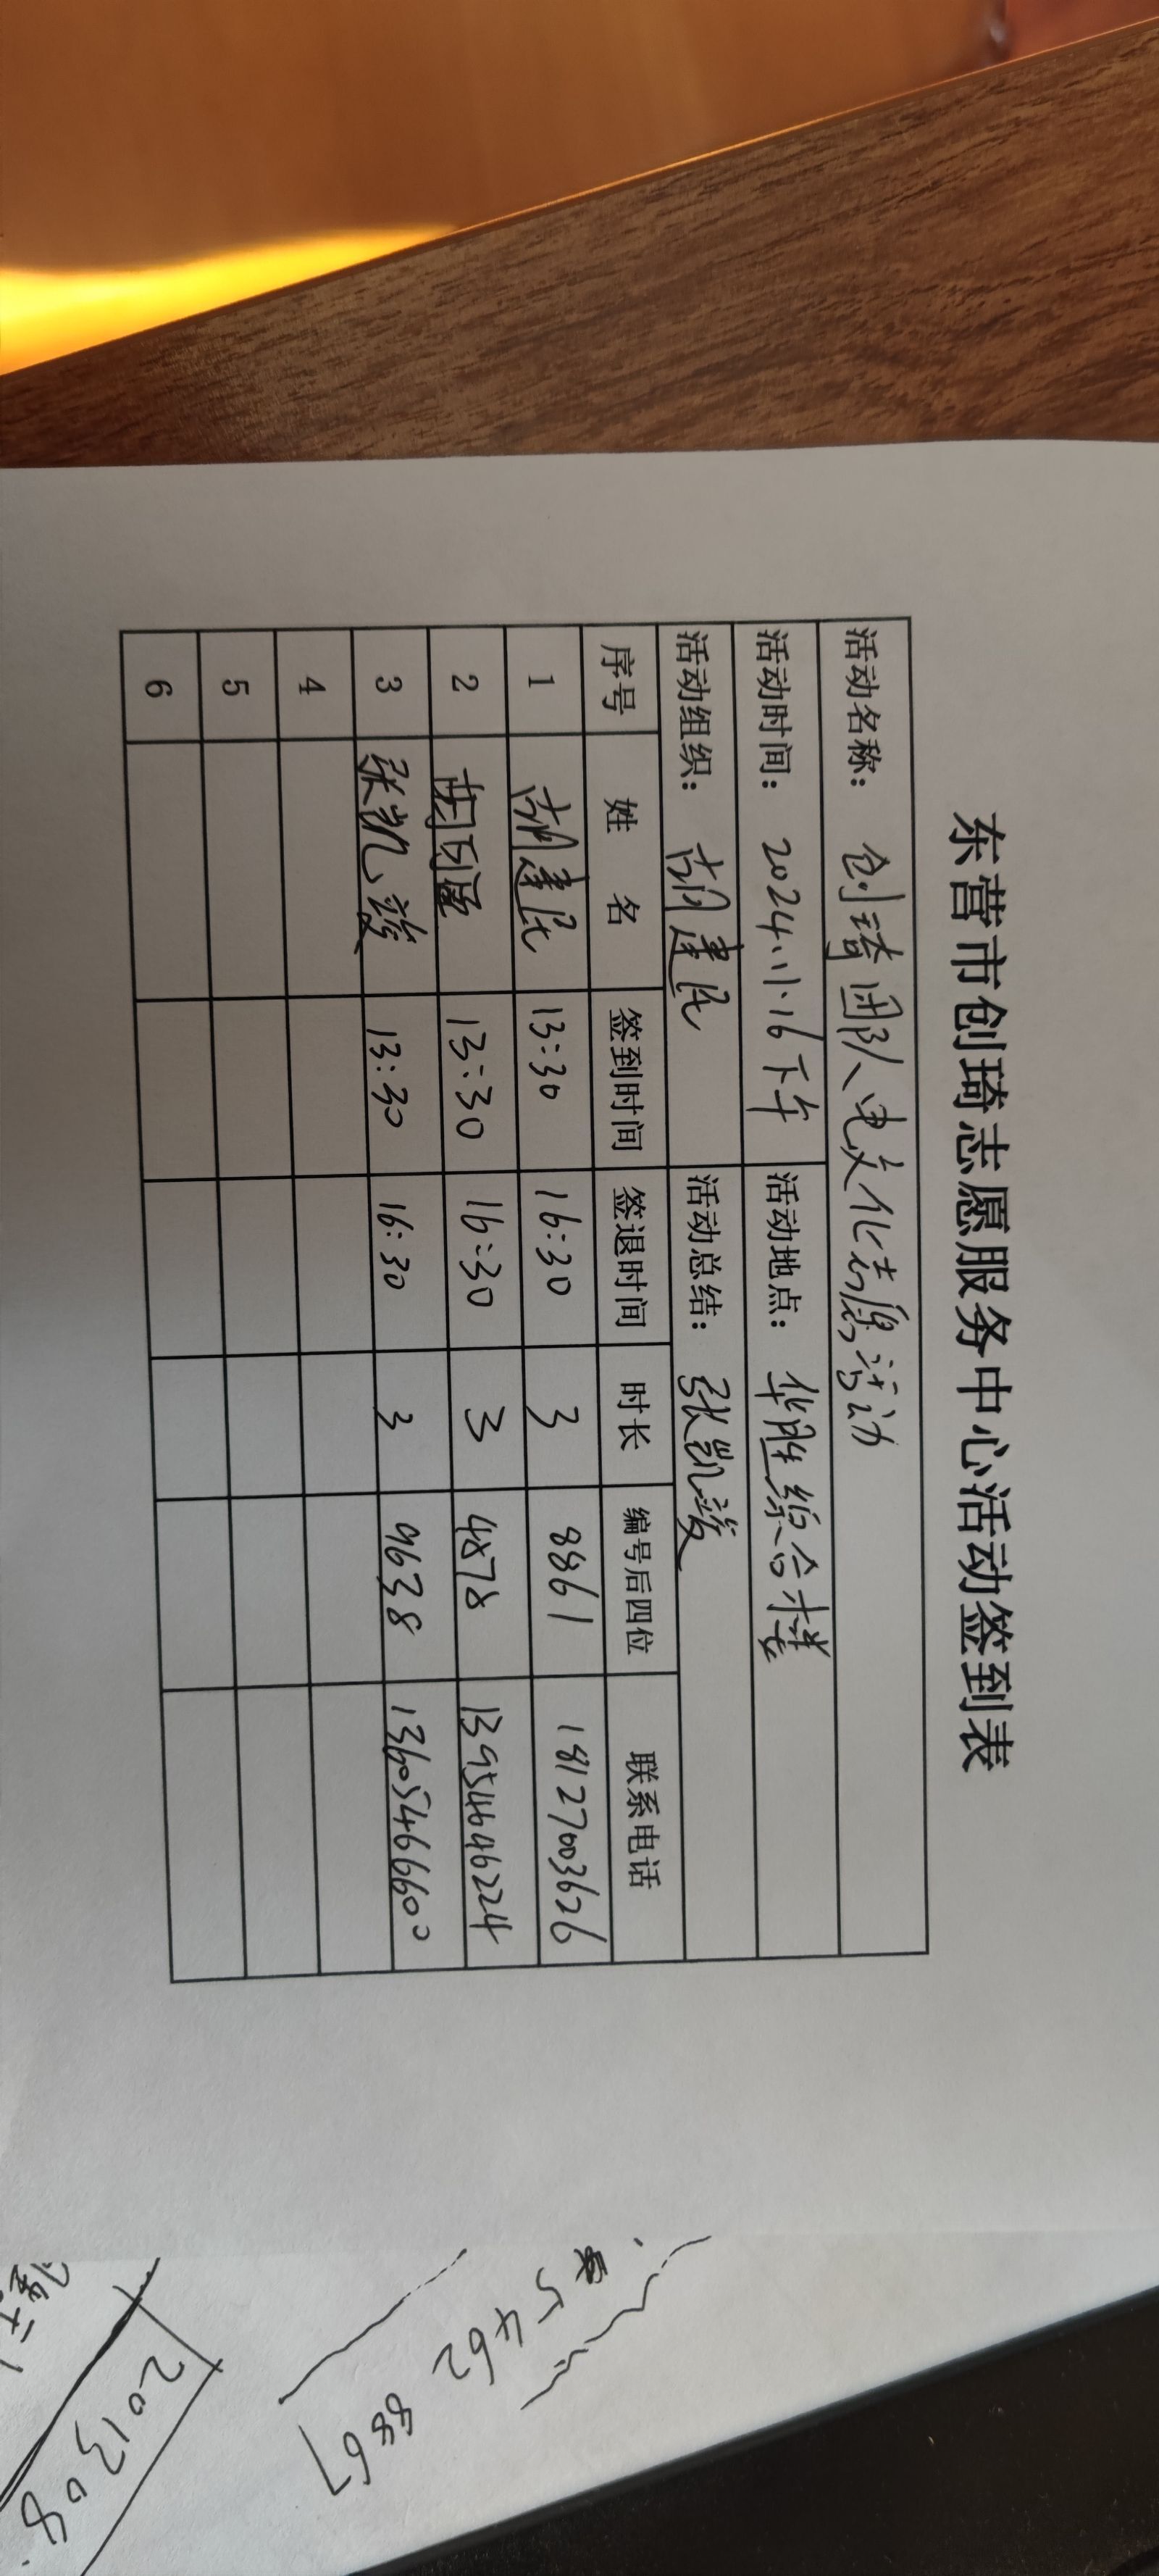 东营市创琦志愿服务中心活动签到表
活动名称： 创琦团队电文化志愿活动
活动时间： 2024.11.16下午 活动地点： 华胜综合楼
活动组织： 胡建民 活动总结： 张凯竣
序号 姓 名 签到时间 签退时间 时长 编号后四位 联系电话
1 胡建民 13:30 16:30 3 8861 18127003626
2 13:30 16:30 3 4878 13954646224
3 张凯竣 13:30 16:30 3 9638 13605466600
4
5
6
5462
8867
201308